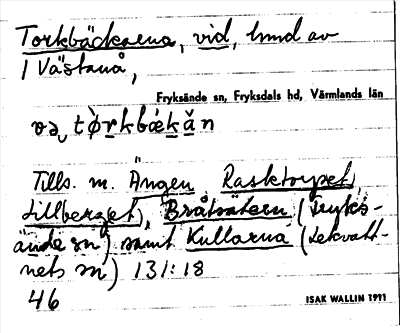 Torkbäckarna, vid, hmd av
1 Västanå,
Fryksände sn, Fryksdals hd, Värmlands län
tø̀rkbækăn
Tills. m. Ängen, Rasktorpet,
Lillberget, Bråtsätern (Fryks-
ände sn) samt Kullarna (Lekvatt-
nets sn) 131:18
46
ISAK WALLIN 1911